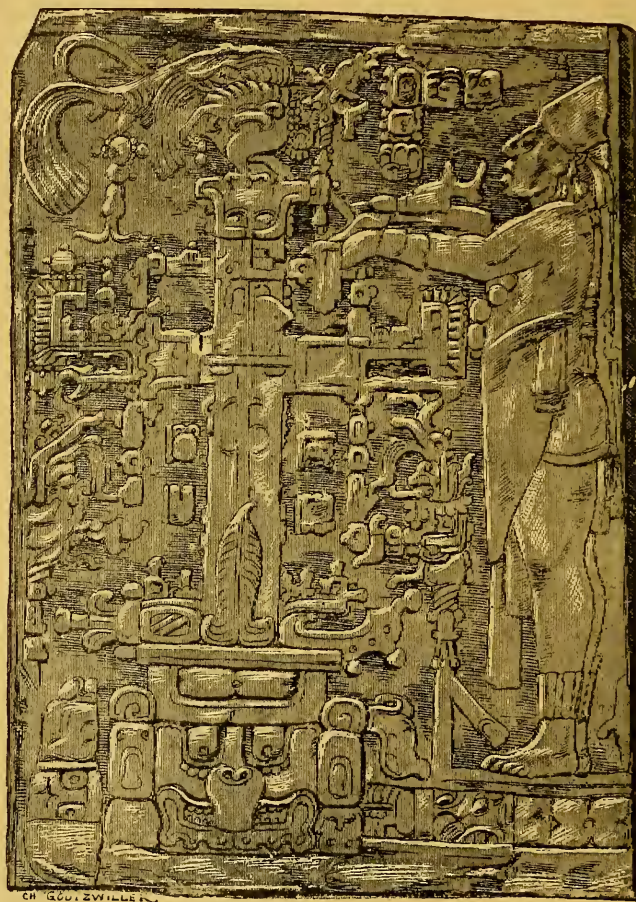 CH GOUTZWILLER